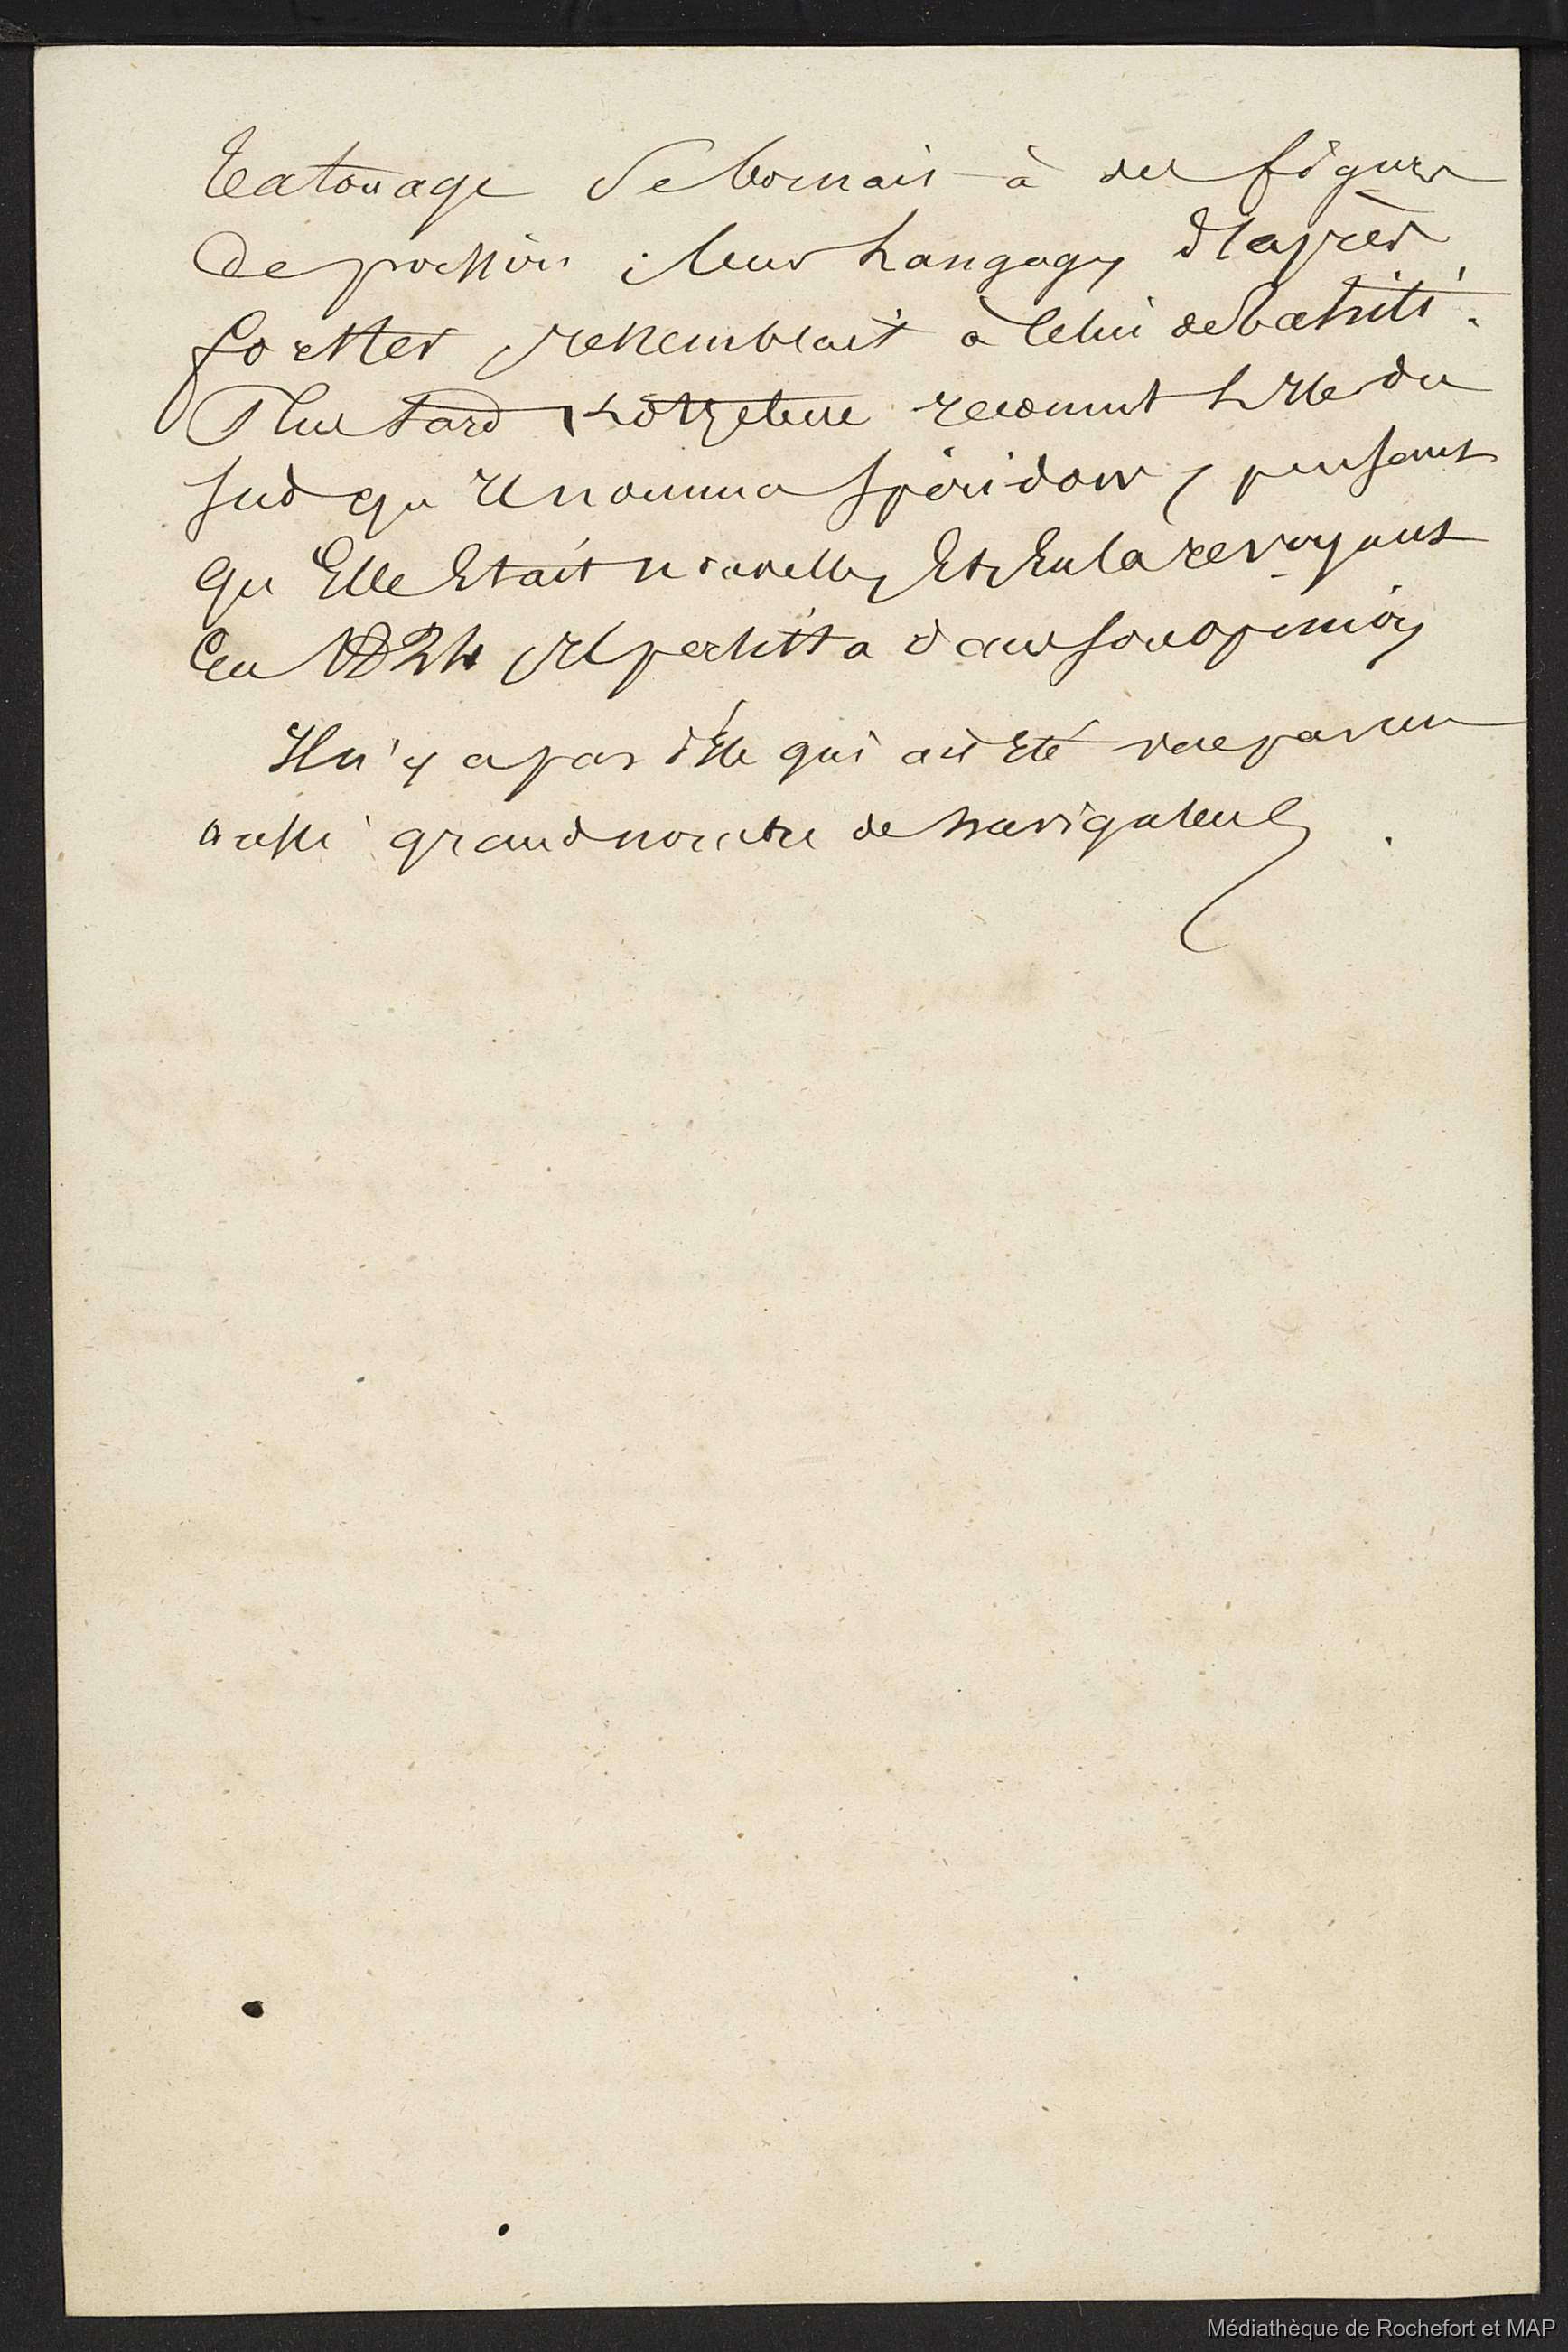 tatouage se bornait à des figures
de poisson ; leur langage, d'après
forster ressemblait à celui de tahiti.
Plus tard Kotzebue reconnut L'Ile du
sud qu il nomma Spiridow, pensant
qu Elle Etait nouvelle, Et En la revoyant
En 1824 il persista dans son opinion
Il n'y a pas d'Ile qui ait Eté vue par un
aussi grand nombre de navigateurs
Médiathèque de Rochefort et MAP